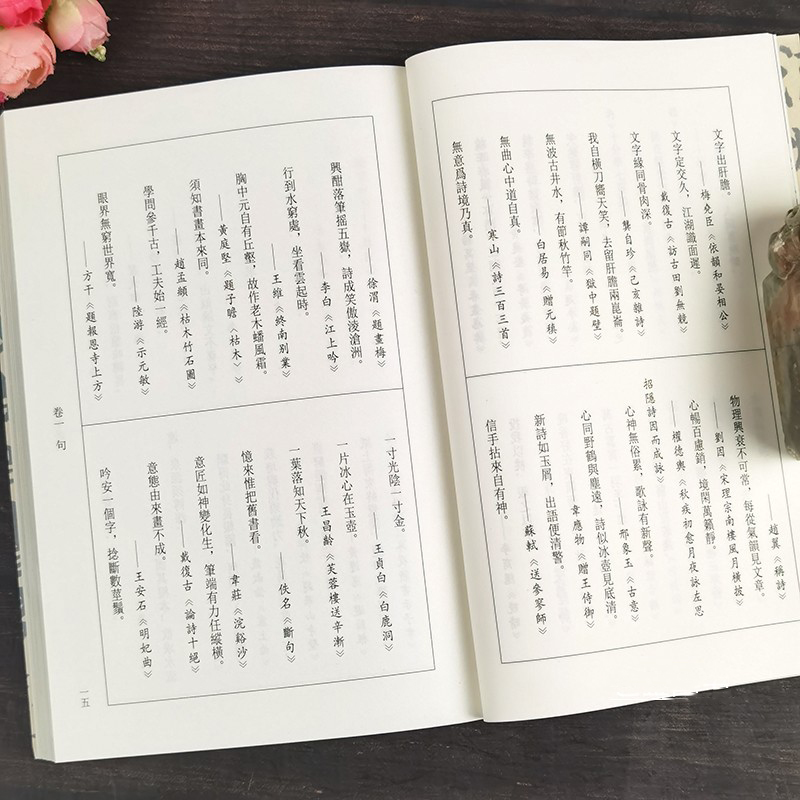 文字出肝膽。
——梅堯臣《依韻和晏相公》
文字定交久，江湖識面遲。
——戴復古《訪古田劉無競》
文字緣同骨肉深。
——龔自珍《己亥雜詩》
我自橫刀嚮天笑，去留肝膽兩崑崙。
——譚嗣同《獄中題壁》
無波古井水，有節秋竹竿。
——白居易《贈元稹》
無曲心中道自真。
——寒山《詩三百三首》
無意爲詩境乃真。
趙翼《稱詩》
物理興衰不可常，每從氣韻見文章。
——劉因《宋理宗南樓風月橫披》
心暢百慮銷，境閑萬籟靜。
——權德輿《秋疾初愈月夜詠左思
招隱詩因而成詠》
心神無俗累，歌詠有新聲。
——邢象玉《古意》
心同野鶴與塵遠，詩似冰壺見底清。
——韋應物《贈王侍御》
新詩如玉屑，出語便清警。
——蘇軾《送參寥師》
信手拈來自有神。
徐渭《題畫梅》
興酣落筆搖五嶽，詩成笑傲淩滄洲。
——李白《江上吟》
行到水窮處，坐看雲起時。
——王維《終南別業》
胸中元自有丘壑，故作老木蟠風霜。
——黃庭堅《題子瞻〈枯木〉》
須知書畫本來同。
——趙孟頫《枯木竹石圖》
學問參千古，工夫始一經。
——陸游《示元敏》
眼界無窮世界寬。
——方干《題報恩寺上方》
一寸光陰一寸金。
——王貞白《白鹿洞》
一片冰心在玉壺。
——王昌齡《芙蓉樓送辛漸》
一葉落知天下秋。
佚名《斷句》
憶來惟把舊書看。
——韋莊《浣谿沙》
意匠如神變化生，筆端有力任縱橫。
——戴復古《論詩十絕》
意態由來畫不成。
——王安石《明妃曲》
吟安一個字，捻斷數莖鬚。
卷一 句
一五